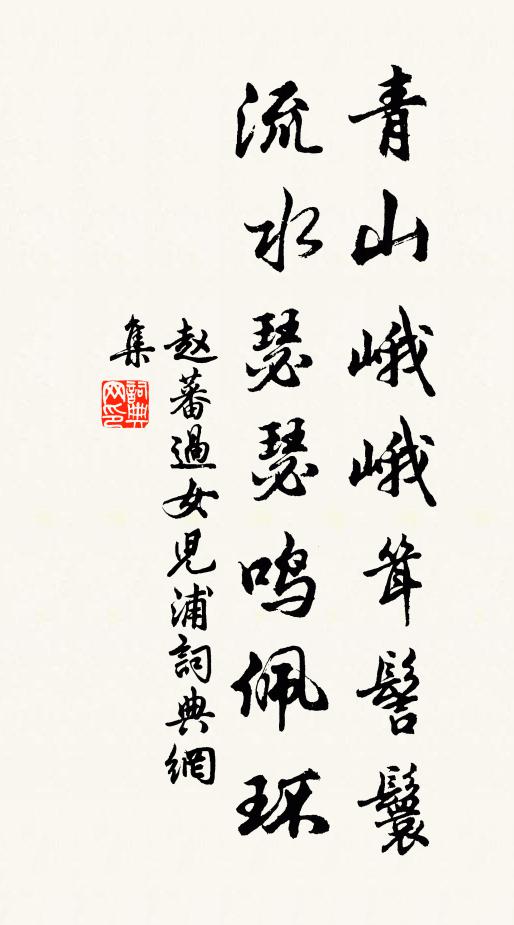 青山峨峨耸髻鬟
流水瑟瑟鸣佩环
赵蕃過女兒浦詞典網
集
詞典
网印